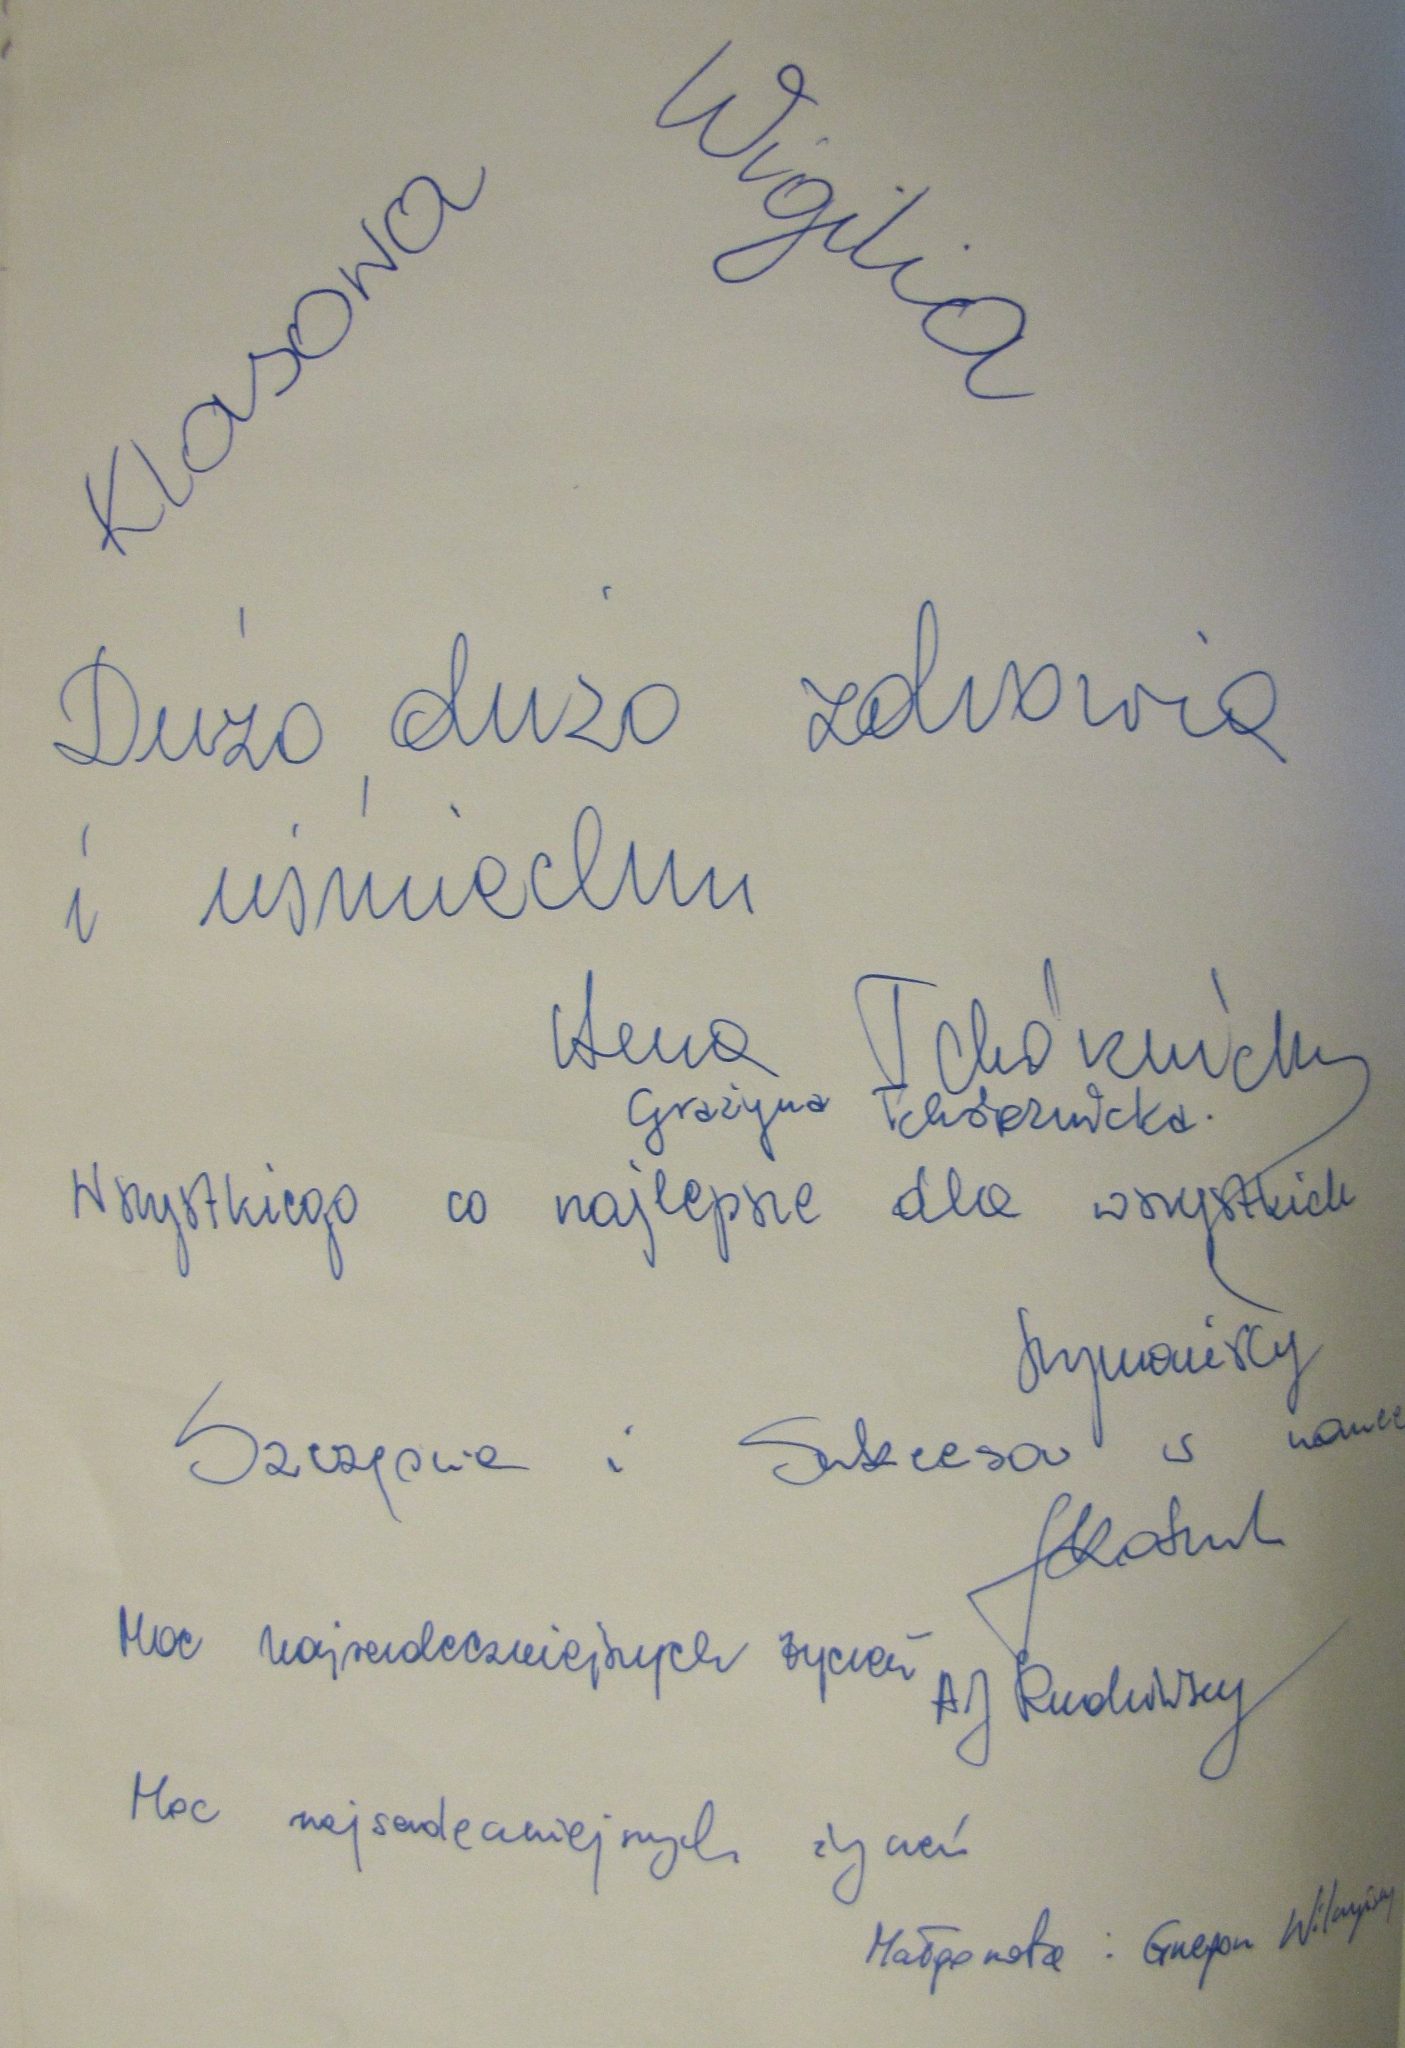 Klasowa Wigilia
Dużo, dużo zdrowia
i uśmiechu
Grażyna Tchórznicka.
Wszystkiego co najlepsze dla wszystkich
Szymańscy
Szczęścia i Sukcesów w nauce
Moc najserdeczniejszych życzeń
AJ Rudowscy
Moc najserdeczniejszych życzeń
Małgorzata i Grzegorz